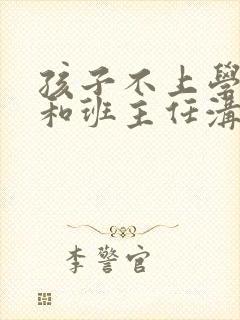 孩子不上學
和班主任溝
李警官